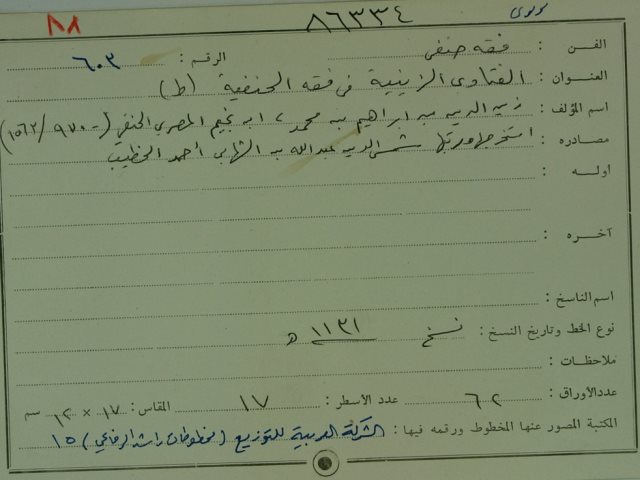 ٨٨ ٨٦٣٣٤
الفن : فقه حنفي الرقم : ٦٠٣
العنوان : الفتاوى الزينية في فقه الحنفية (ط)
اسم المؤلف : زين الدين بن ابراهيم بن محمد، ابن نجيم المصري الحنفي (-٩٧٠/١٥٦٢)
مصادره : استخرجها ورتبها شمس الدين عبدالله بن الشهابي أحمد الخطيب
اوله :
آخره :
اسم الناسخ :
نوع الخط وتاريخ النسخ : نسخ ١١٣١ هـ
ملاحظات :
عدد الأوراق : ٦٢ عدد الأسطر : ١٧ المقاس : ١٧ × ١٢ سم
المكتبة المصور عنها المخطوط ورقمه فيها : الشركة العربية للتوزيع (مخطوطات راشد الرفاعي) ١٥